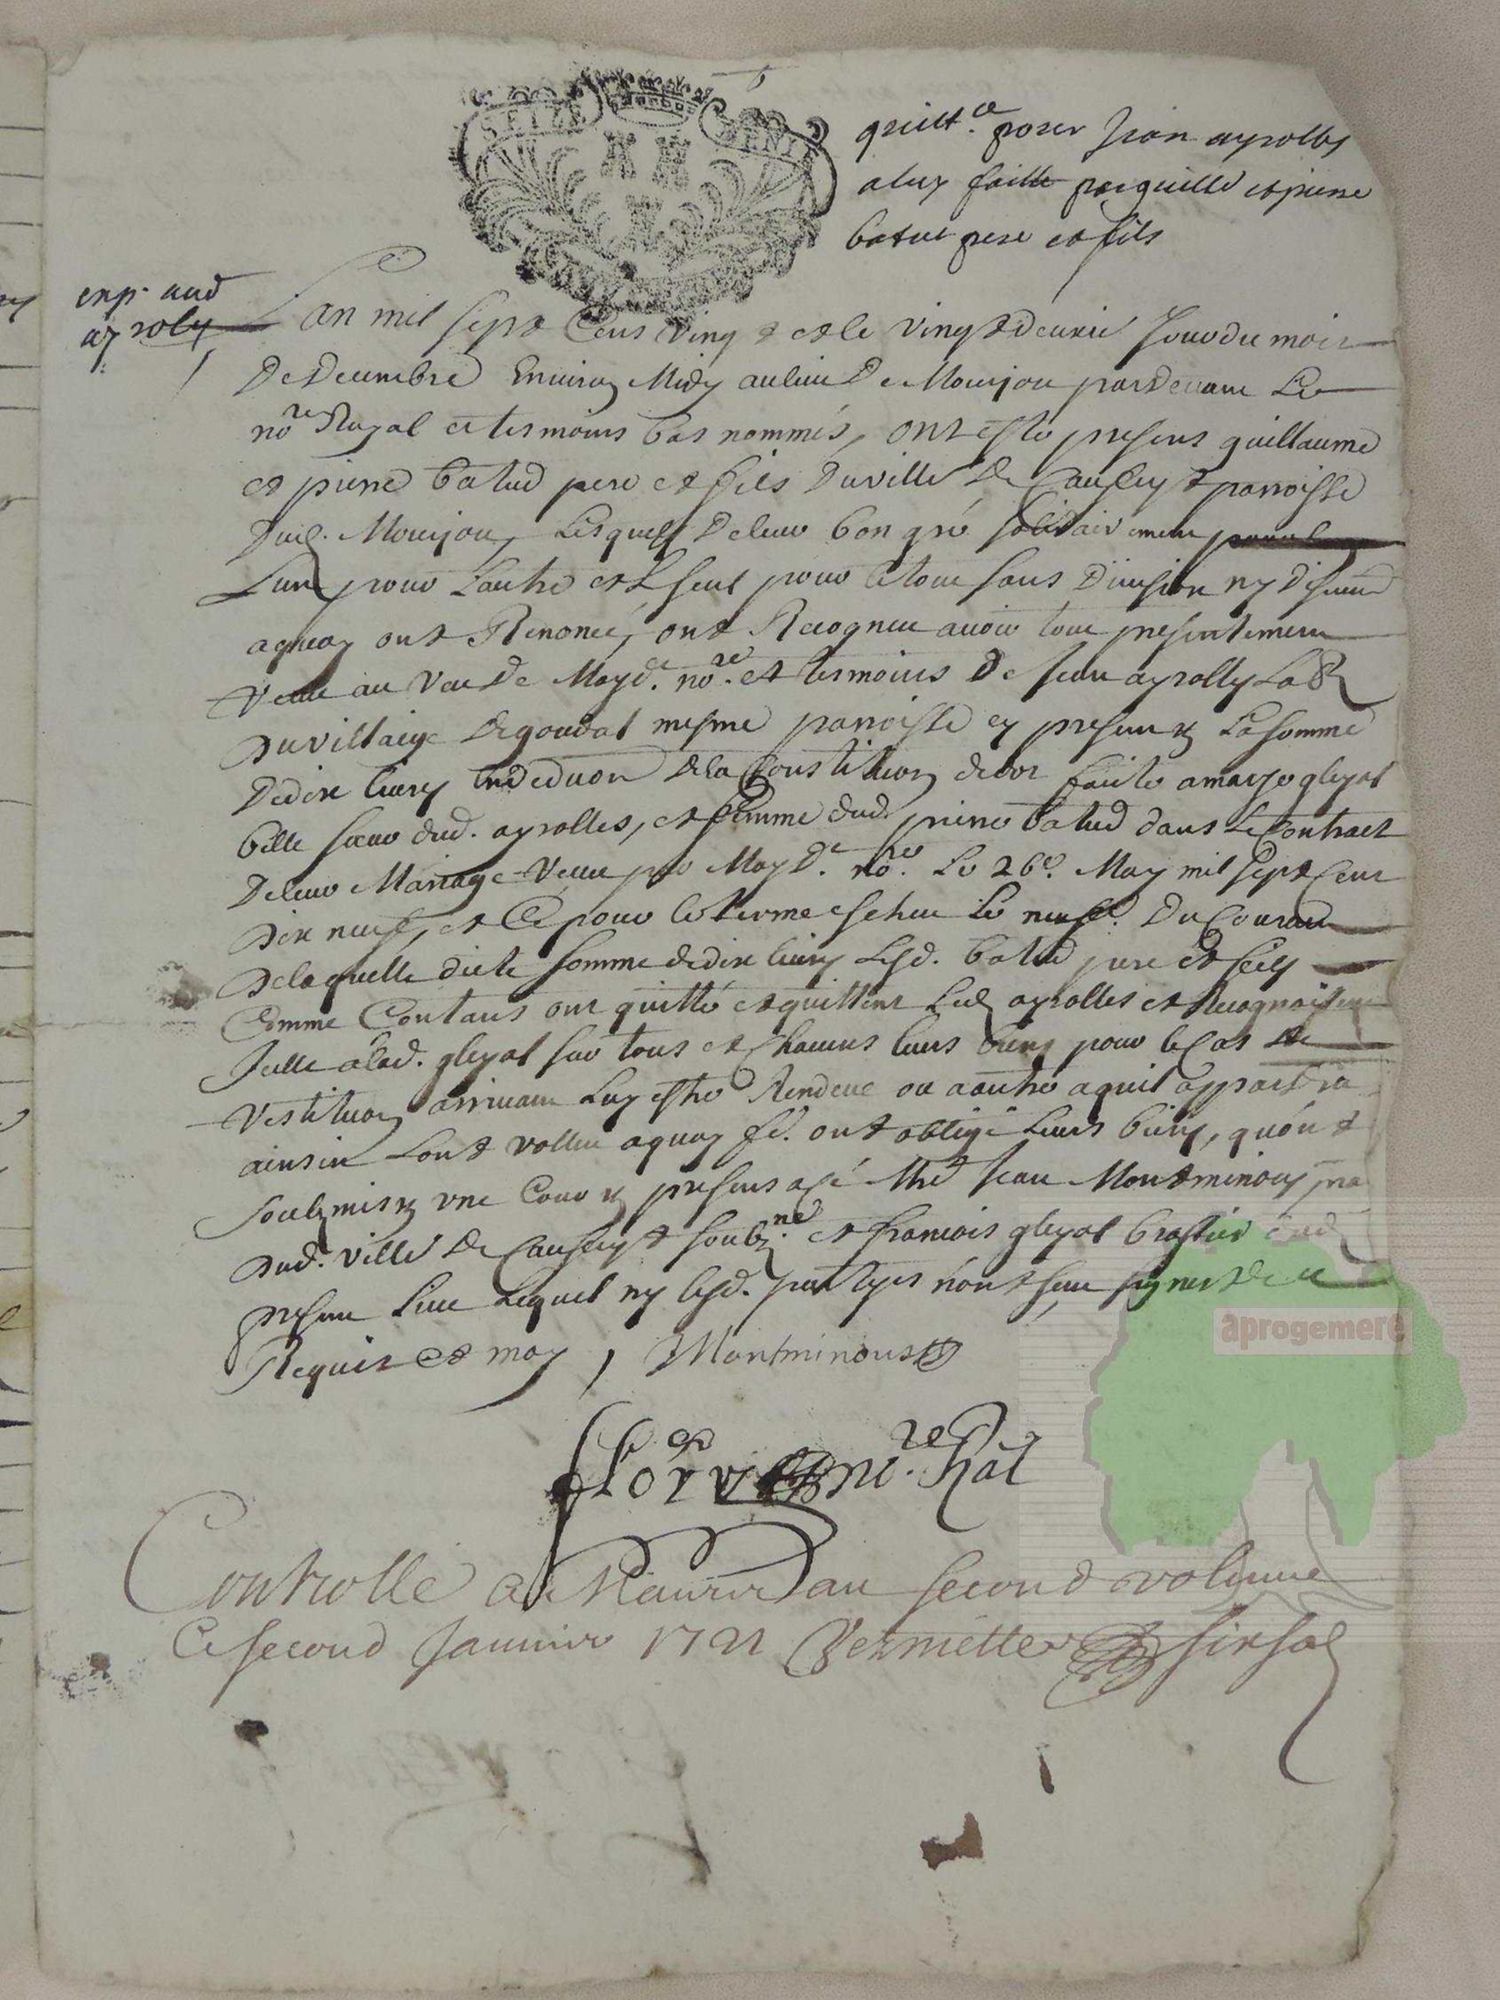 SEIZE DENIE
quitt.ce pour Jean ayrolles
a luy faitte par guille et pierre
batut pere et fils
exp. aud
ayroles
L'an mil sept Cens vingt et le vingt deuxie Jour du mois
De Decembre Environ Midy au lieu De Mourjou pardevant Le
no.re Royal et tesmoins bas nommés, ont esté presens guillaume
et pierre batud pere et fils du villé De Causeyt parroisse
Dud. Mourjou, Lesquels De leur bon gré solidairement
Lun pour Lautre et L seul pour le tout sans Division ny
a quoy ont Renoncé, ont Recogneu avoir tout presentement
Receu au veu De Moyd. no.re et tesmoins De Jean ayrolles
Du villaige De goudal mesme parroisse La somme
De dix livres En deduction De la Constitution de dot faite a gleyal
belle soeur dud. ayrolles, et femme dud. pierre batud dans Le Contract
De leur Mariage Receu par Moy D. no.re Le 26e. May mil sept Cens
Dix neuf, et Ce pour le terme escheu Le Du Courant
De laquelle dicte somme de dix livres Lesd. batud pere et fils
Comme Contans ont quitté et quittent Led ayrolles et Recognoissent
Jcelle a lad. gleyal sur tous et Chacuns leurs biens pour le Cas de
Restitution arrivant Luy estre Rendeue ou a autre a quil appartiendra
ainsin Lont vollu a quoy fe. ont obligé Leurs biens, quont
soubzmis presens a ce Me Jean Montminoux
Dud. villé De Causeyt soubz.né et francois gleyal brassier
present Lieu Lequel ny lesd. partyes nont sceu signer de ce
Requis et moy, Montminous
no.re Ral
Controllé a Maurs au second volume
Ce second Janvier 1721 Vermette
aprogemere